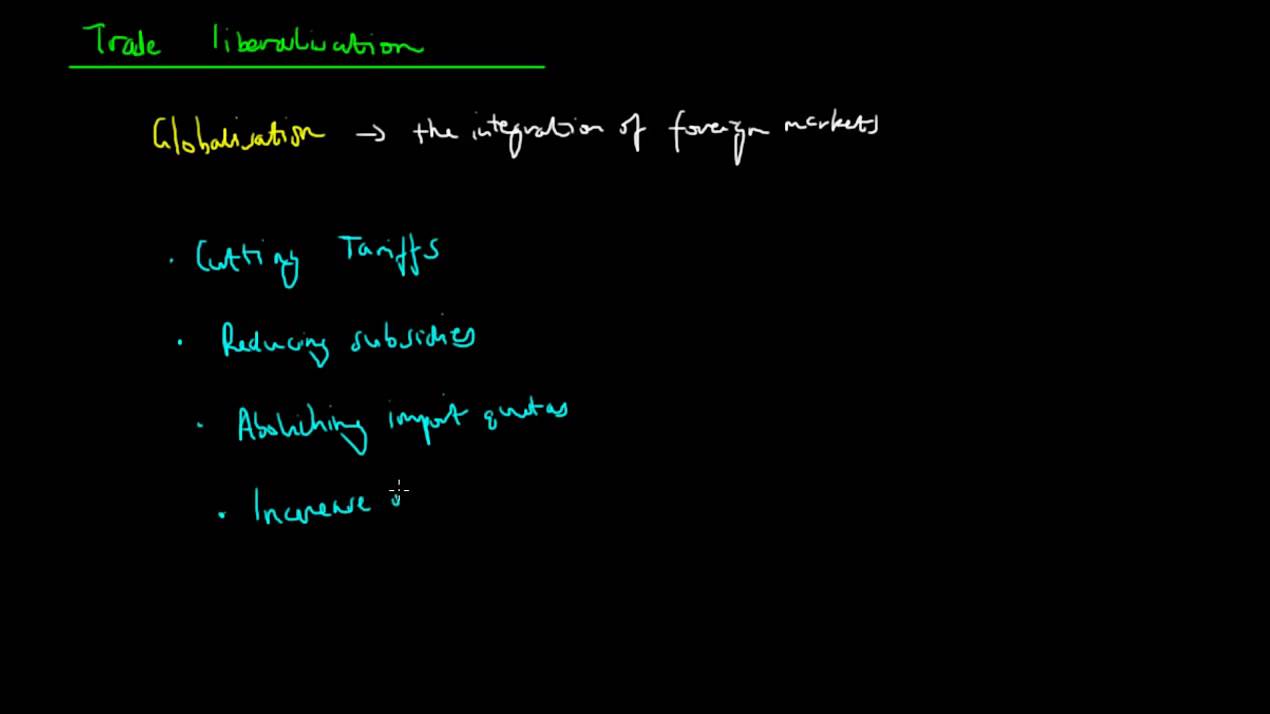 Trade liberalisation
Globalisation → the integration of foreign markets
• Cutting Tariffs
• Reducing subsidies
• Abolishing import quotas
• Increase